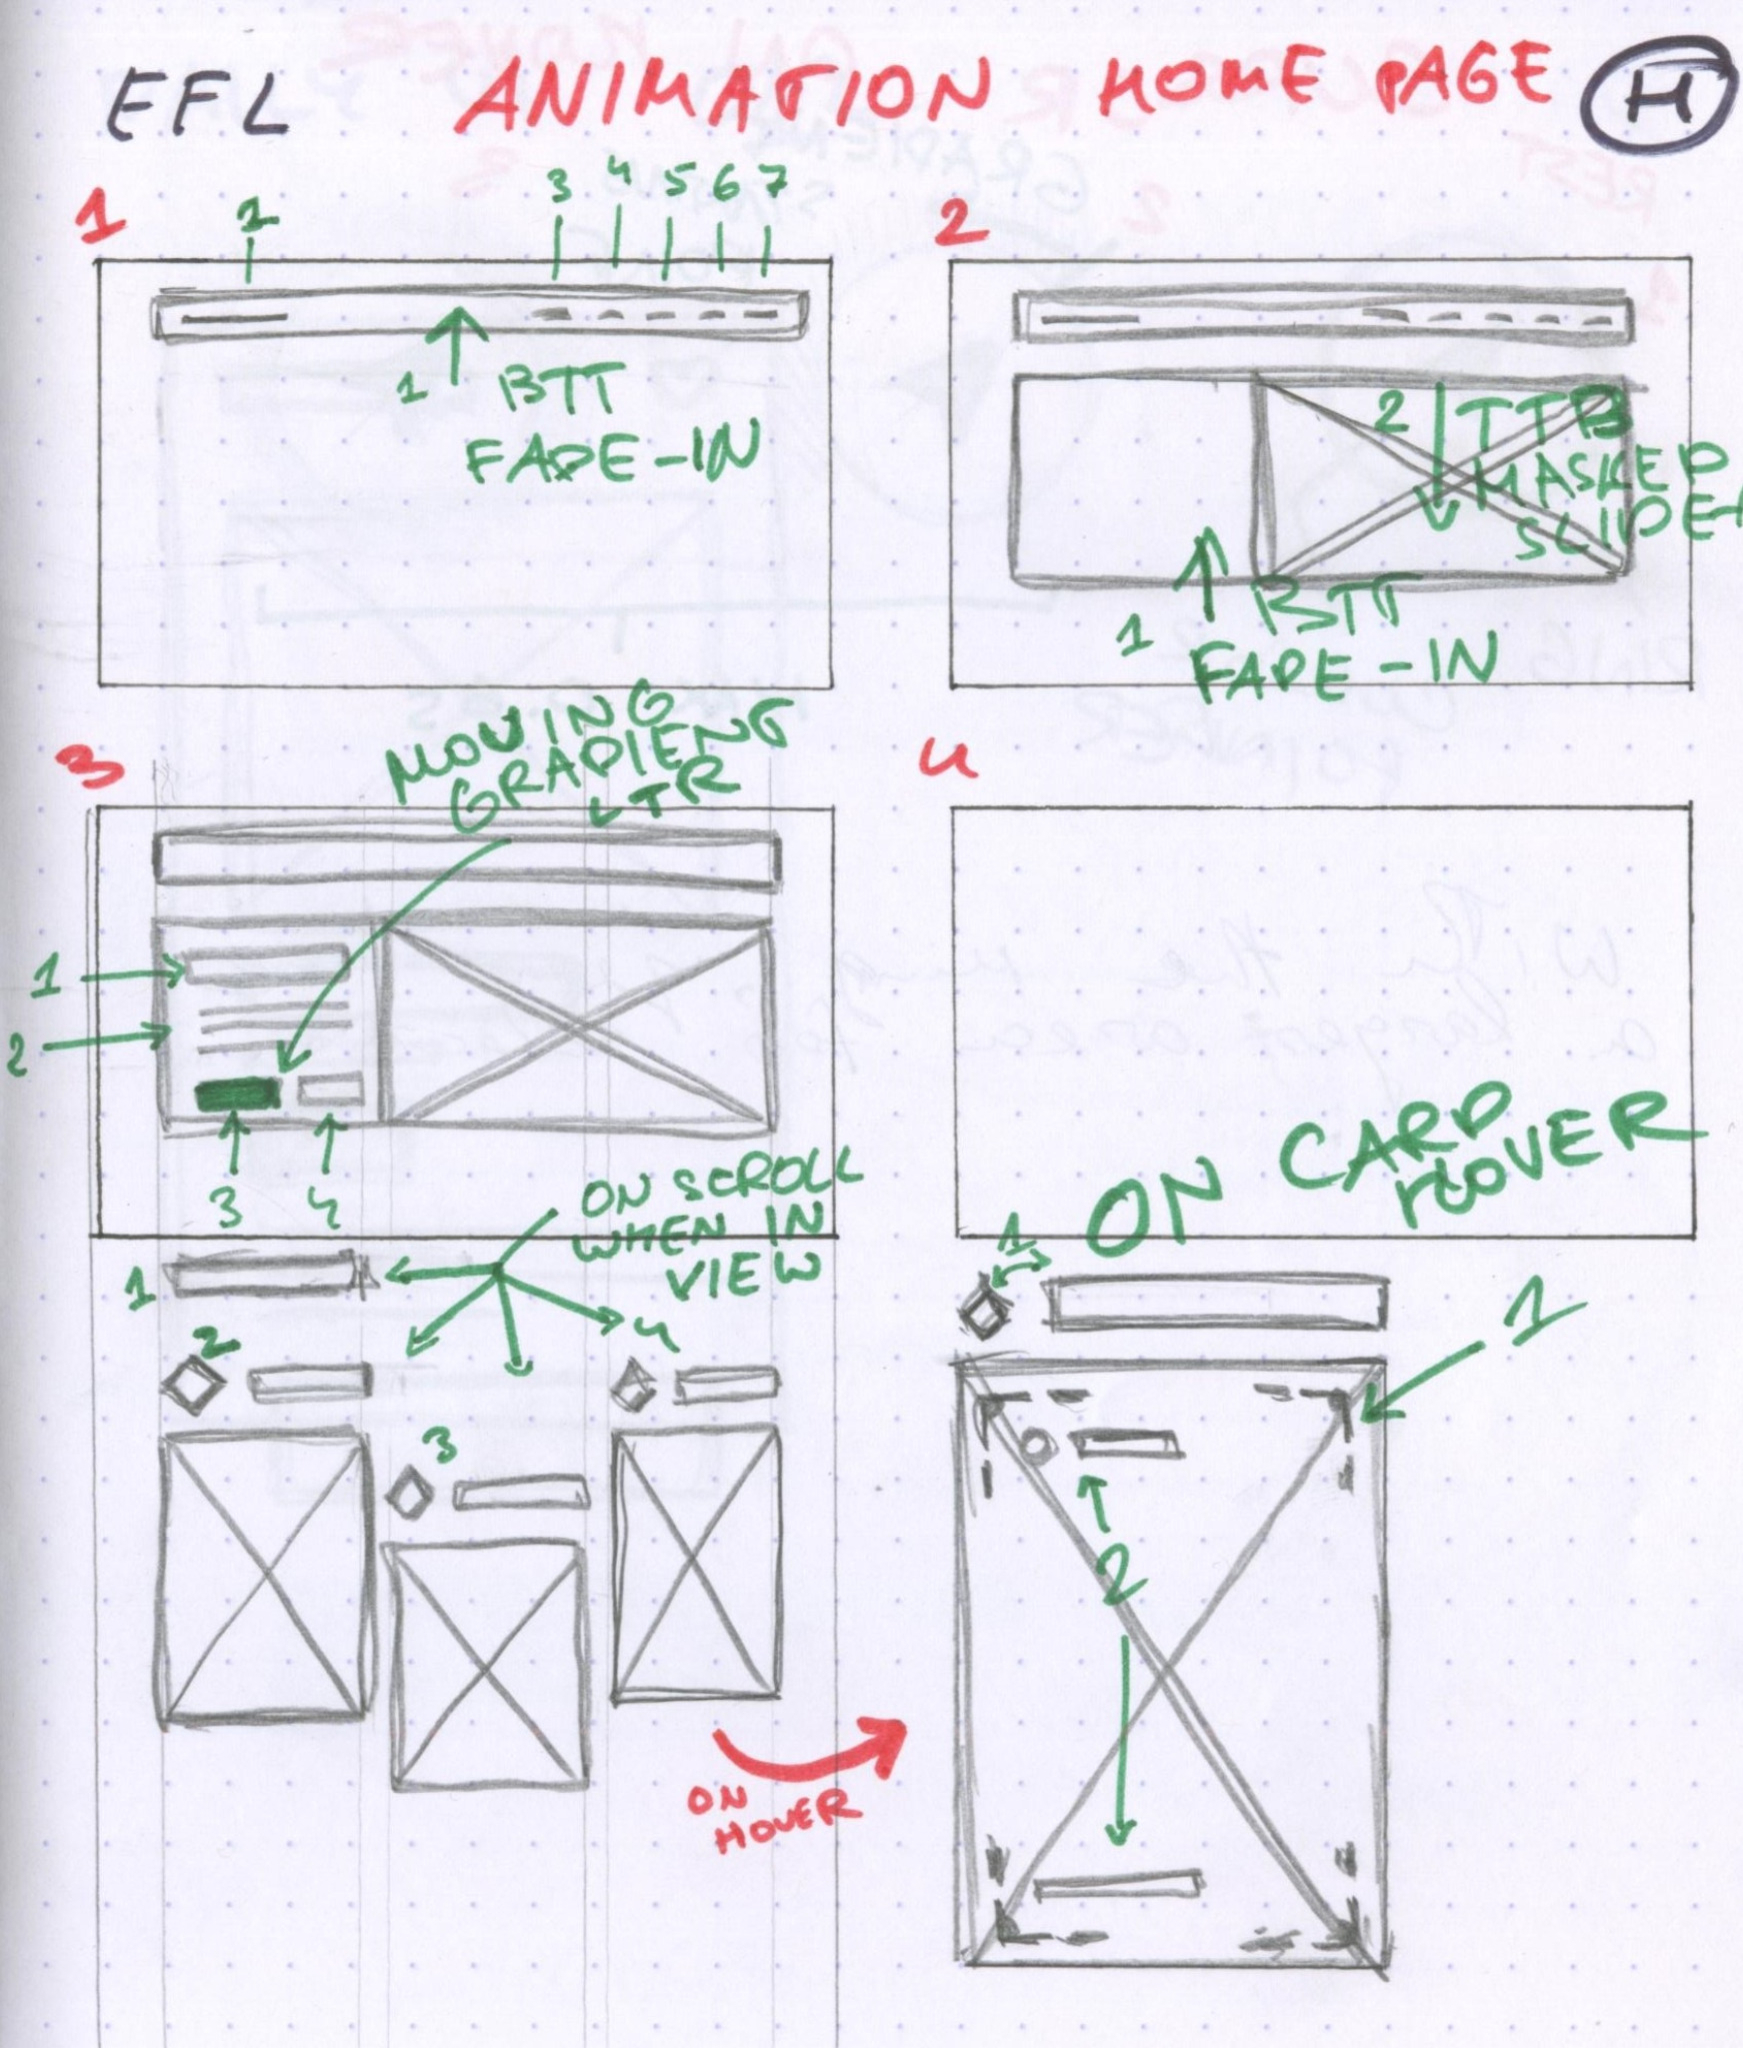 EFL ANIMATION HOME PAGE H
1
2 3 4 5 6 7
1 BTT
FADE-IN
2
2 TTB
MASKED
SLIDE
1 BTT
FADE-IN
3
MOVING
GRADIENG
LTR
1
2
3 4
ON SCROLL
WHEN IN
VIEW
1
2
3
4
ON
HOVER
4
ON CARD
HOVER
1
1
2